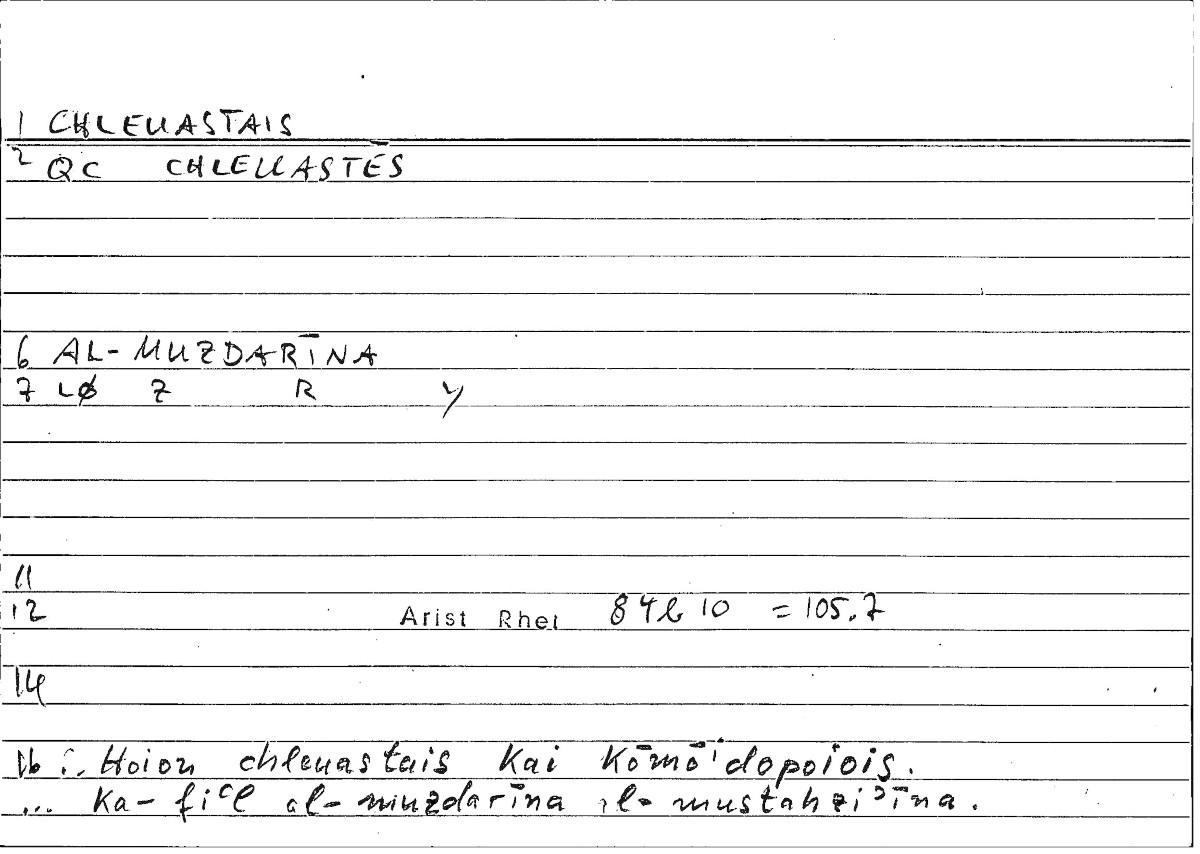 1 CHLEUASTAIS
2 QC CHLEUASTĒS
6 AL-MUZDARĪNA
7 LØ Z R Y
11
12 Arist Rhet 84b10 = 105.7
14
16 :. Hoion chleuastais kai kōmōidopoiois.
... Ka-fiʿl al-muzdarīna al-mustahziʾīna.